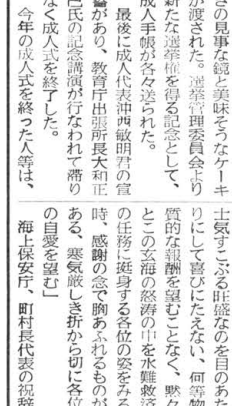 きの見事な鏡と美味そうなケーキ
が渡された。選挙管理委員会より
新たな選挙権を得る記念として、
成人手帳が各々送られた。
最後に成人代表沖西敏明君の宣
誓があり、教育庁出張所長大和正
巳氏の記念講演が行なわれて滞り
なく成人式を終了した。
今年の成人式を終った人等は、
士気すこぶる旺盛なのを目のあた
りにして喜びにたえない、何等物
質的な報酬を望むことなく、黙々
とこの玄海の怒濤の中を水難救済
の任務に挺身する各位の姿をみる
時、感謝の念で胸あふれるものが
ある、寒気厳しき折から切に各位
の自愛を望む」
海上保安庁、町村長代表の祝辞